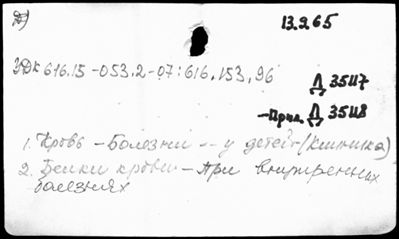 13.265
УДК 616.15-053.2-07:616.153.96
Д 3547
-Прил. Д 3548
1. Кровь - Болезни -- у детей (клиника)
2. Белки крови - при внутренных
болезнях